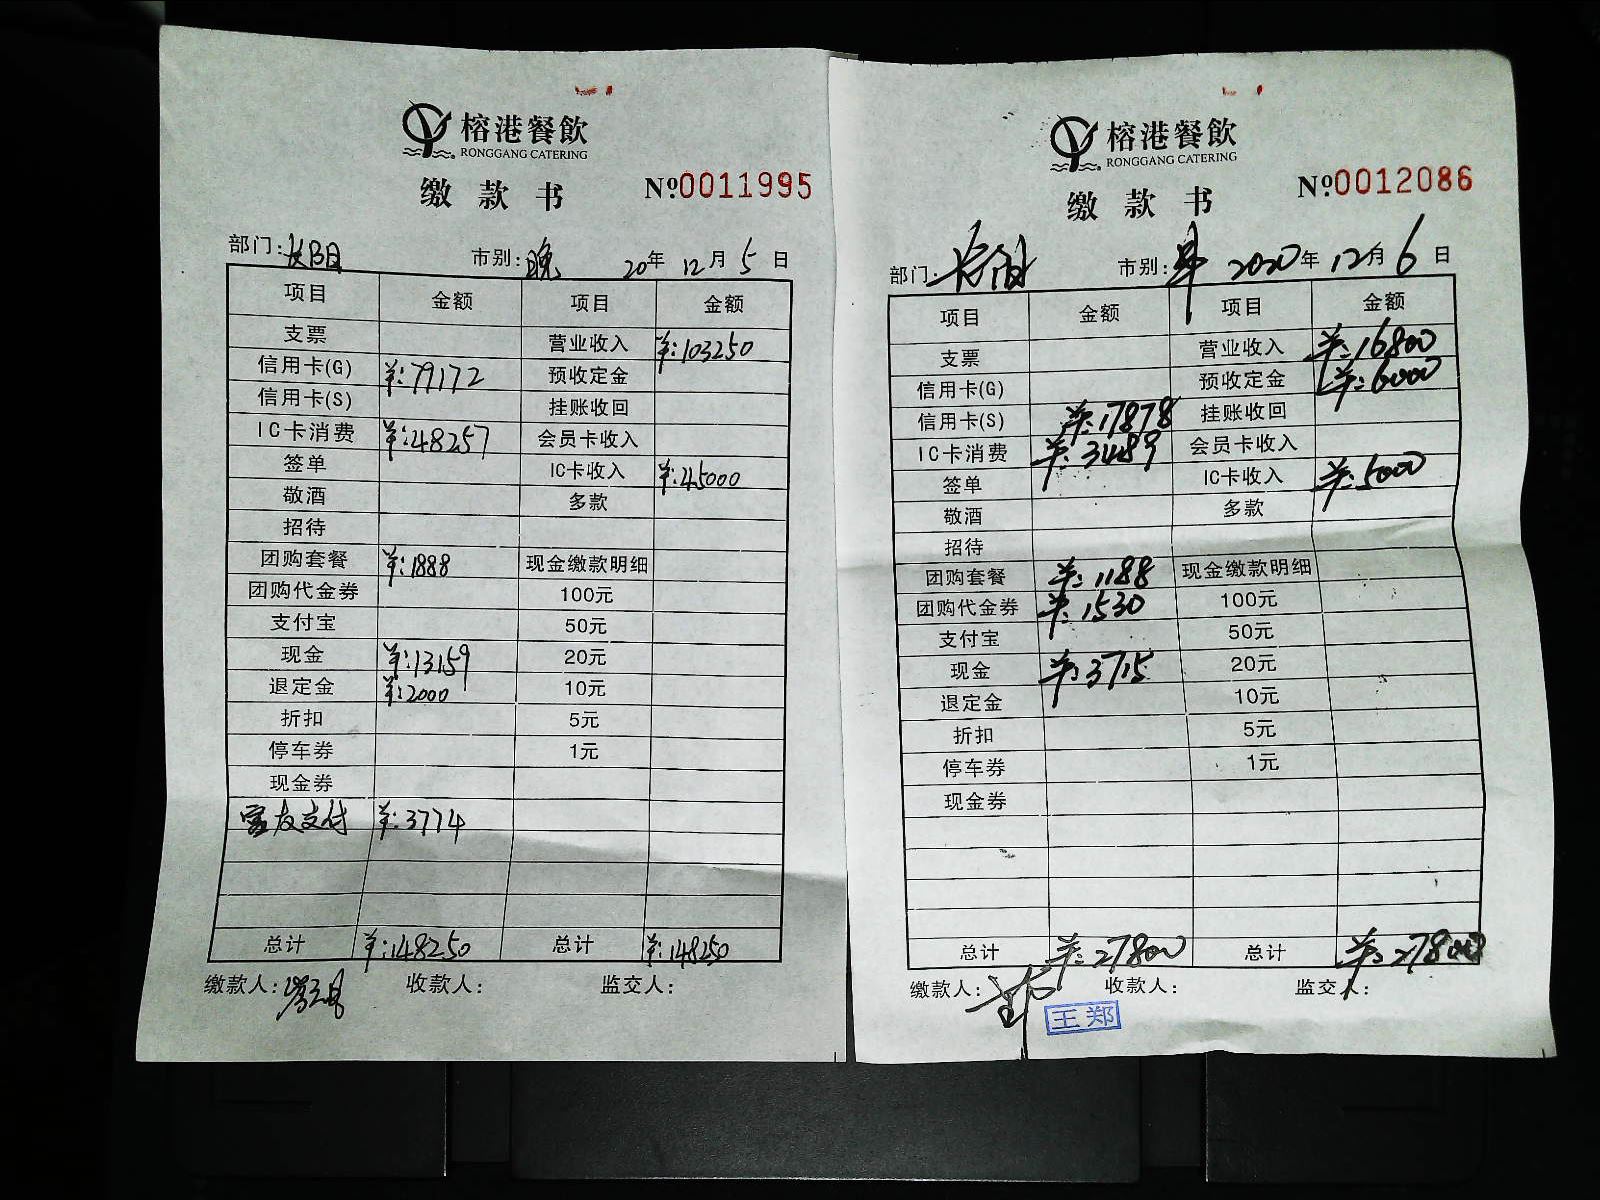 榕港餐飲
RONGGANG CATERING
缴款书 №0011995
部门: 市别:晚 20年12月5日
项目 金额 项目 金额
支票 营业收入 ¥:103250
信用卡(G) ¥:79172 预收定金
信用卡(S) 挂账收回
IC卡消费 ¥:48257 会员卡收入
签单 IC卡收入 ¥:45000
敬酒 多款
招待
团购套餐 ¥:1888 现金缴款明细
团购代金券 100元
支付宝 50元
现金 ¥:13159 20元
退定金 ¥:2000 10元
折扣 5元
停车券 1元
现金券
支付 ¥:3774
总计 ¥:148250 总计 ¥:148250
缴款人: 收款人: 监交人:
榕港餐飲
RONGGANG CATERING
缴款书 №0012086
部门: 市别: 2020年12月6日
项目 金额 项目 金额
支票 营业收入 ¥:16800
信用卡(G) 预收定金 ¥:6000
信用卡(S) ¥:17878 挂账收回
IC卡消费 ¥:3489 会员卡收入
签单 IC卡收入 ¥:5000
敬酒 多款
招待
团购套餐 ¥:1188 现金缴款明细
团购代金券 ¥:1530 100元
支付宝 50元
现金 ¥:3715 20元
退定金 10元
折扣 5元
停车券 1元
现金券
总计 ¥:27800 总计 ¥:27800
缴款人: 收款人: 监交人:
王郑